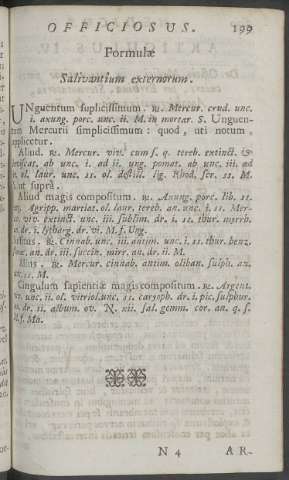 OFFICIOSUS. 199
Formulæ
Salivantium externorum.
UNguentum suplicissimum. ℞. Mercur. crud. unc.
i. axung. porc. unc. ii. M. in mortar. S. Unguen-
tum Mercurii simplicissimum: quod, uti notum,
aplicetur.
Aliud. ℞. Mercur. viv. cum s. q. tereb. extinct. &
unc. i. ad ii. ung. pomat. ab unc. iii. ad
ol. laur. unc. ss. ol. destill. lig. Rhod. scr. ss. M.
Ut supra.
Aliud magis compositum. ℞. Axung. porc. lib. ss.
Agripp. martiat. ol. laur. tereb. an. unc. i. ss. Mer-
cur. viv. extinct. unc. iii. sublim. dr. i. ss. thur. myrrh.
an. dr. i. lytharg. dr. vi. M. f. Ung.
℞. Cinnab. unc. iii. antim. unc. i. ss. thur. benz.
an. dr. iii. succin. mirr. an. dr. ii. M.
℞. Mercur. cinnab. antim. oliban. sulph. an.
ss. M.
Cingulum sapientiæ magis compositum. ℞. Argent.
unc. ii. ol. vitriol. unc. ss. caryoph. dr. i. pic. sulphur.
dr. ii. album. ov. N. xii. sal. gemm. cor. an. q. s.
M. f. Ma.
N 4 AR-